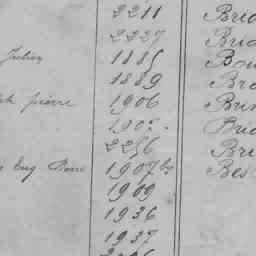 2211 Brid
2227 Brid
Julien 1185 Bou
1889 Bro
pierre 1906 Brun
1907 Brid
2256 Bri
Eug. Pierre 1907 bis Bes
1909
1936
1937